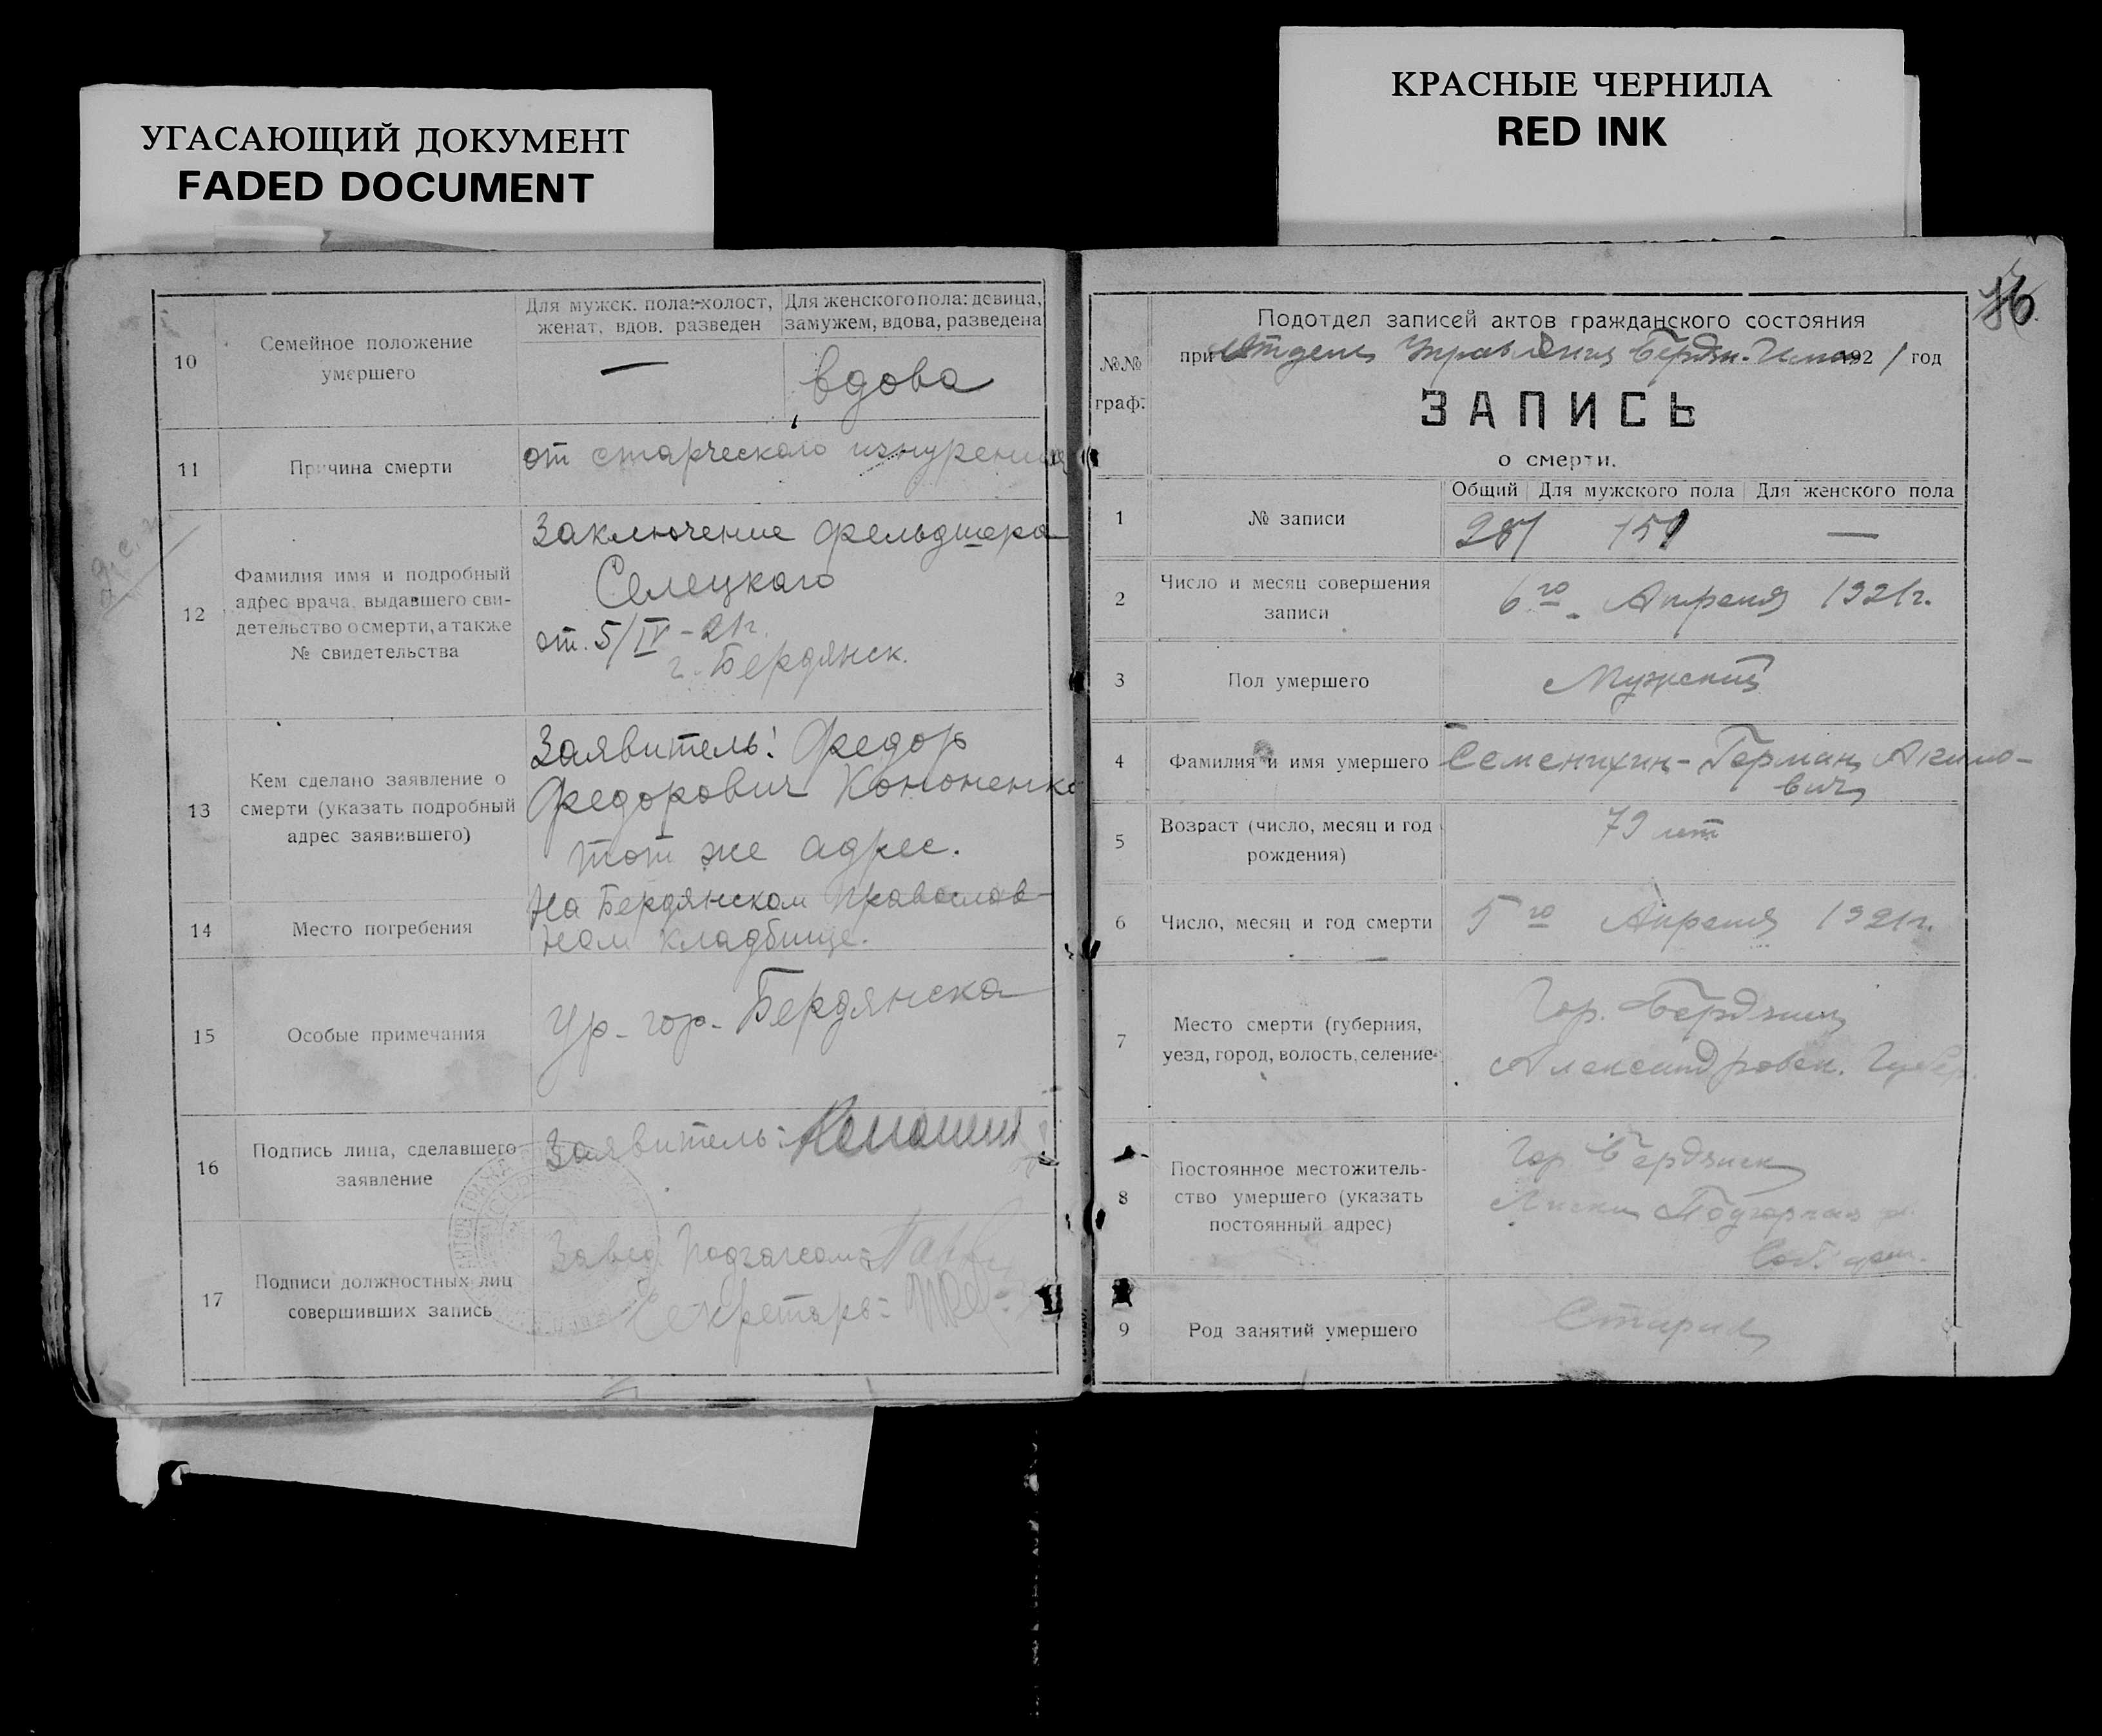 УГАСАЮЩИЙ ДОКУМЕНТ
FADED DOCUMENT
КРАСНЫЕ ЧЕРНИЛА
RED INK
10
Семейное положение
умершего
Для мужск. пола: холост,
женат, вдов, разведен
—
Для женского пола: девица,
замужем, вдова, разведена
вдова
11
Причина смерти
от старческого изнурения
12
Фамилия имя и подробный
адрес врача, выдавшего сви-
детельство о смерти, а также
№ свидетельства
Заключение фельдшера
Селецкаго
от. 5/IV-21г.
г. Бердянск.
13
Кем сделано заявление о
смерти (указать подробный
адрес заявившего)
Заявитель: Федор
Федорович Кононенко
тот же адрес.
14
Место погребения
На Бердянском Православ-
ном кладбище.
15
Особые примечания
Ур- гор- Бердянска
16
Подпись лица, сделавшего
заявление
Заявитель:
17
Подписи должностных лиц
совершивших запись
Завед. Подзагсом=
Секретарь=
16.
№№
граф.
Подотдел записей актов гражданского состояния
при Отделе Управления Бердян. 1921 год
ЗАПИСЬ
о смерти.
1
№ записи
Общий
Для мужского пола
Для женского пола
281
151
—
2
Число и месяц совершения
записи
6го Апреля 1921г.
3
Пол умершего
Мужский
4
Фамилия и имя умершего
Семенихин- Герман
вич
5
Возраст (число, месяц и год
рождения)
79 лет
6
Число, месяц и год смерти
5го Апреля 1921г.
7
Место смерти (губерния,
уезд, город, волость, селение
Гор. Бердянск
Александровск. Губер.
8
Постоянное местожитель-
ство умершего (указать
постоянный адрес)
Гор Бердянск
Лиски Подгорная
9
Род занятий умершего
Старик